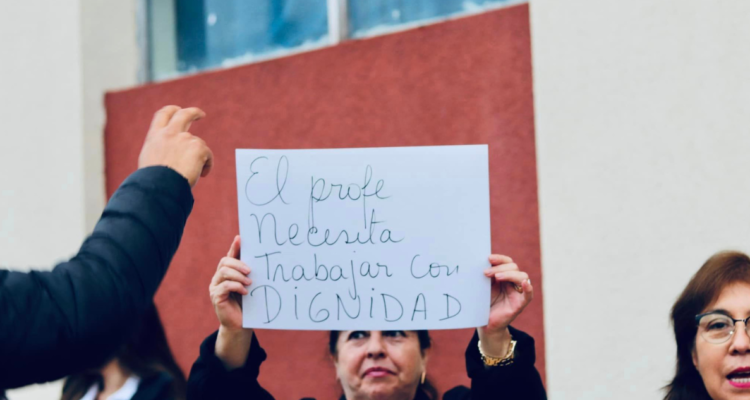 El profe
Necesita
Trabajar con
DIGNIDAD